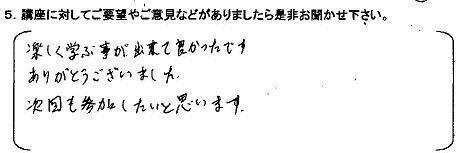 5．講座に対してご要望やご意見などがありましたら是非お聞かせ下さい。
楽しく学ぶ事が出来て良かったです
ありがとうございました.
次回も参加したいと思います.